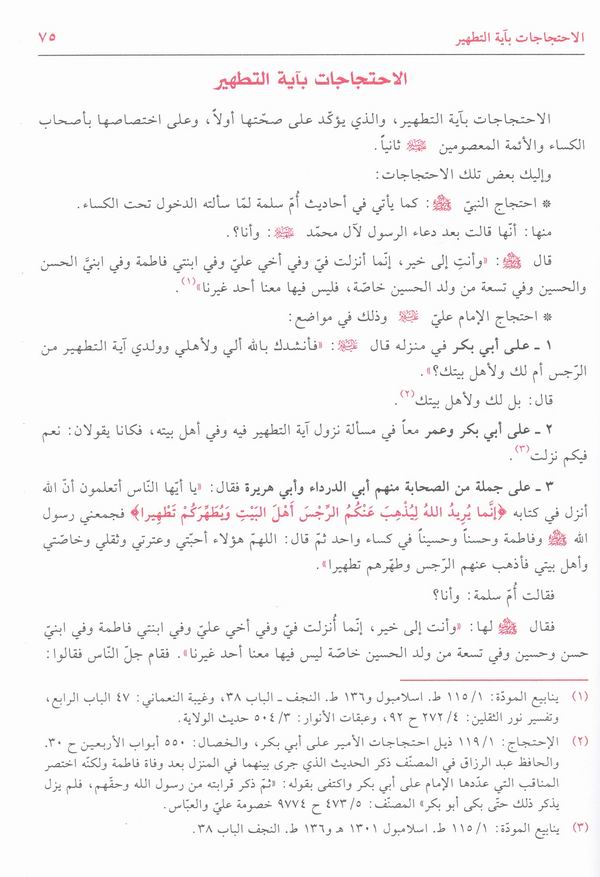 الاحتجاجات بآية التطهير ٧٥
الاحتجاجات بآية التطهير
الاحتجاجات بآية التطهير، والذي يؤكّد على صحّتها أولاً، وعلى اختصاصها بأصحاب
الكساء والأئمة المعصومين ثانياً.
وإليك بعض تلك الاحتجاجات:
* احتجاج النبيّ ﷺ: كما يأتي في أحاديث أُمّ سلمة لمّا سألته الدخول تحت الكساء.
منها: أنّها قالت بعد دعاء الرسول لآل محمّد : وأنا؟.
قال ﷺ: «وأنتِ إلى خير، إنّما أنزلت فيّ وفي أخي عليّ وفي ابنتي فاطمة وفي ابنيَّ الحسن
والحسين وفي تسعة من ولد الحسين خاصّة، فليس فيها معنا أحد غيرنا»(١).
* احتجاج الإمام عليّ وذلك في مواضع:
١ ـ على أبي بكر في منزله قال : «فأنشدك بالله ألي ولأهلي وولدي آية التطهير من
الرّجس أم لك ولأهل بيتك؟».
قال: بل لك ولأهل بيتك(٢).
٢ ـ على أبي بكر وعمر معاً في مسألة نزول آية التطهير فيه وفي أهل بيته، فكانا يقولان: نعم
فيكم نزلت(٣).
٣ ـ على جملة من الصحابة منهم أبي الدرداء وأبي هريرة فقال: «يا أيّها النّاس أتعلمون أنّ الله
أنزل في كتابه ﴿إِنَّما يُرِيدُ اللهُ لِيُذْهِبَ عَنْكُمُ الرِّجْسَ أَهْلَ البَيْتِ وَيُطَهِّرَكُمْ تَطْهِيرا﴾ فجمعني رسول
الله ﷺ وفاطمة وحسناً وحسيناً في كساء واحد ثمّ قال: اللهمّ هؤلاء أحبّتي وعترتي وثقلي وخاصّتي
وأهل بيتي فأذهب عنهم الرّجس وطهّرهم تطهيرا».
فقالت أُمّ سلمة: وأنا؟
فقال ﷺ لها: «وأنت إلى خير، إنّما أُنزلت فيّ وفي أخي عليّ وفي ابنتي فاطمة وفي ابنيّ
حسن وحسين وفي تسعة من ولد الحسين خاصّة ليس فيها معنا أحد غيرنا». فقام جلّ النّاس فقالوا:
(١) ينابيع المودّة: ١/ ١١٥ ط. اسلامبول و١٣٦ ط. النجف ـ الباب ٣٨، وغيبة النعماني: ٤٧ الباب الرابع،
وتفسير نور الثقلين: ٤/ ٢٧٢ ح ٩٢، وعبقات الأنوار: ٣/ ٥٠٤ حديث الولاية.
(٢) الإحتجاج: ١/ ١١٩ ذيل احتجاجات الأمير على أبي بكر، والخصال: ٥٥٠ أبواب الأربعين ح ٣٠.
والحافظ عبد الرزاق في المصنّف ذكر الحديث الذي جرى بينهما في المنزل بعد وفاة فاطمة ولكنّه اختصر
المناقب التي عدّدها الإمام على أبي بكر واكتفى بقوله: «ثمّ ذكر قرابته من رسول الله وحقّهم، فلم يزل
يذكر ذلك حتّى بكى أبو بكر» المصنّف: ٥/ ٤٧٣ ح ٩٧٧٤ خصومة عليّ والعبّاس.
(٣) ينابيع المودّة: ١/ ١١٥ ط. اسلامبول ١٣٠١ هـ و١٣٦ ط. النجف الباب ٣٨.